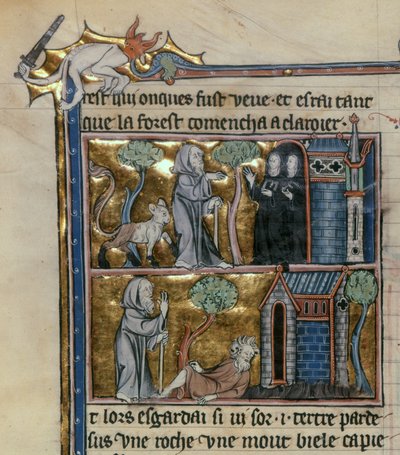 rest qui onques fust veue · et esrai tant
que la forest comencha a claroier ·
t lors esgardai si ui sor · i · tertre parde
sus vne roche vne mout biele capie